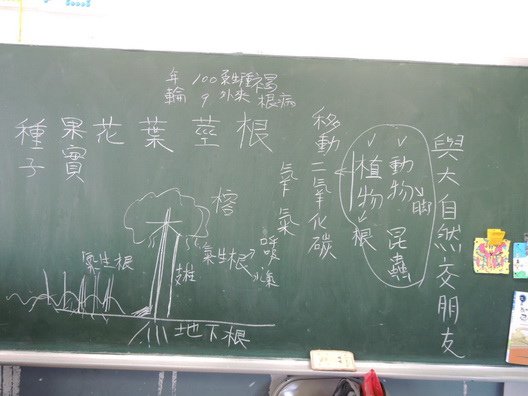 與大自然交朋友
動物
腳
昆蟲
植物
根
移動
二氧化碳
氧氣
褐根病
外來
100
9
年輪
根
莖
葉
花
果實
種子
榕
氣生根
呼吸
支柱
氣生根
地下根